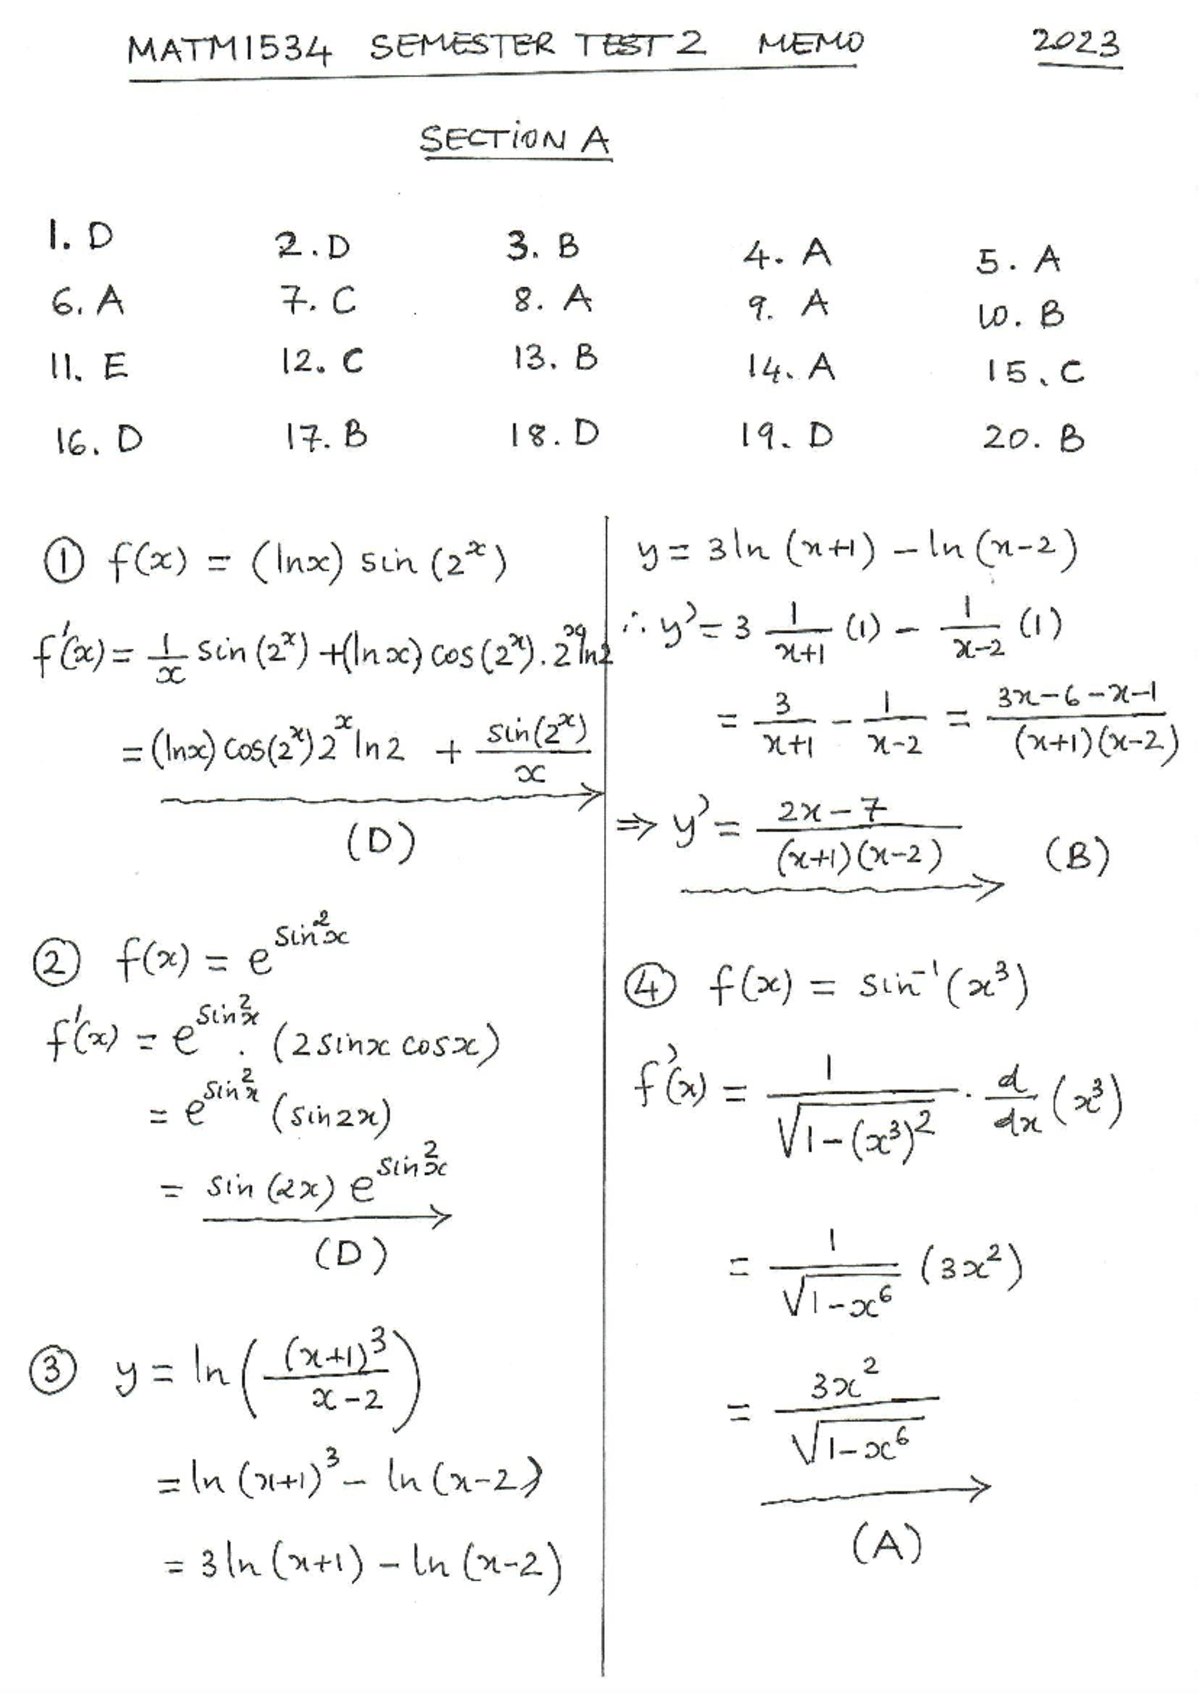 MATM1534 SEMESTER TEST 2 MEMO 2023
SECTION A
1. D 2. D 3. B 4. A 5. A
6. A 7. C 8. A 9. A 10. B
11. E 12. C 13. B 14. A 15. C
16. D 17. B 18. D 19. D 20. B
① f(x) = (lnx) sin (2^x)
f'(x) = 1/x sin (2^x) + (ln x) cos (2^x) . 2^x ln2
= (lnx) cos(2^x) 2^x ln 2 + sin(2^x)/x
(D)
② f(x) = e^(sin²x)
f'(x) = e^(sin²x) . (2 sinx cosx)
= e^(sin²x) (sin2x)
= sin (2x) e^(sin²x)
(D)
③ y = ln ( (x+1)³/(x-2) )
= ln (x+1)³ - ln (x-2)
= 3 ln (x+1) - ln (x-2)
y = 3 ln (x+1) - ln (x-2)
∴ y' = 3 1/(x+1) (1) - 1/(x-2) (1)
= 3/(x+1) - 1/(x-2) = (3x-6-x-1)/((x+1)(x-2))
⇒ y' = (2x-7)/((x+1)(x-2)) (B)
④ f(x) = sin⁻¹(x³)
f'(x) = 1/√(1-(x³)²) . d/dx (x³)
= 1/√(1-x⁶) (3x²)
= 3x²/√(1-x⁶)
(A)